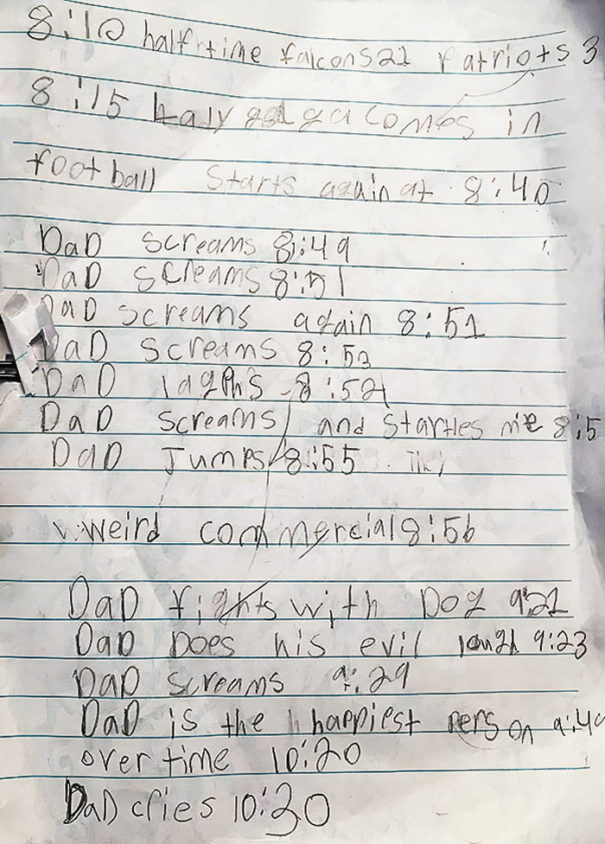 8:10 half time falcons 21 Patriots 3
8:15 Lady gaga comes in
football starts again at 8:40
DaD screams 8:49
DaD screams 8:51
DaD screams again 8:51
DaD screams 8:53
DaD lagphs 8:54
DaD screams and startles me 8:5
DaD Jumps 8:55
weird commercial 8:56
DaD fights with Dog 9:21
DaD Does his evil laugh 9:23
DaD screams 9:29
DaD is the happiest person 9:40
over time 10:20
DaD cries 10:30